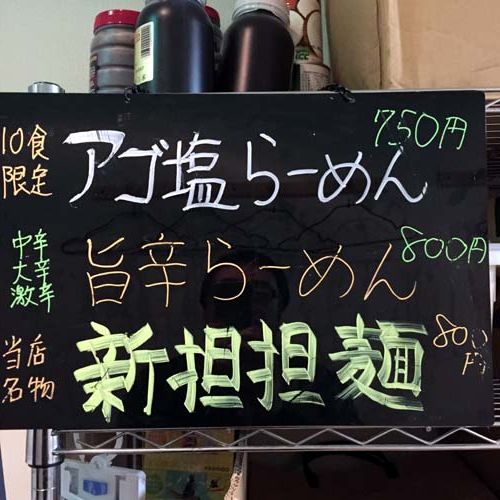 10食
限定
アゴ塩らーめん
750円
中辛
大辛
激辛
旨辛らーめん
800円
当店
名物
新担担麺
800
円